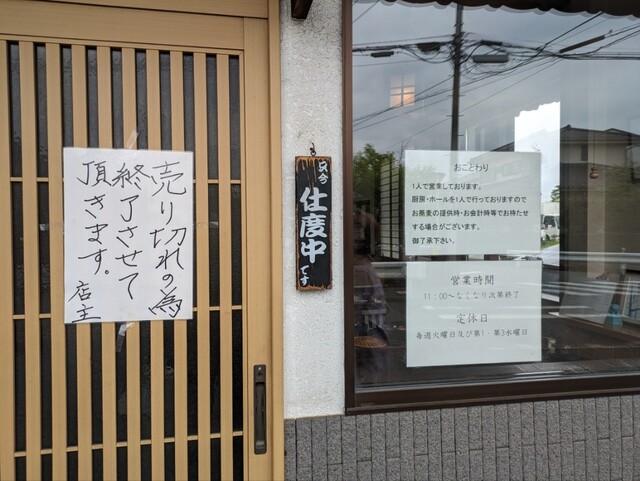 売り切れの為
終了させて
頂きます。
店主
只今
仕度中
です
おことわり
1人で営業しております。
厨房・ホールを1人で行っておりますので
お蕎麦の提供時・お会計時等でお待たせ
する場合がございます。
御了承下さい。
営業時間
11:00〜なくなり次第終了
定休日
毎週火曜日及び第1・第3水曜日